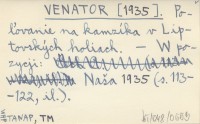 VENATOR [1935]. Po-
ľovanie na kamzíka v Lip-
tovských holiach. – W po-
zycji:
Naša 1935 (s. 113-
-122, il.).
TANAP, TM